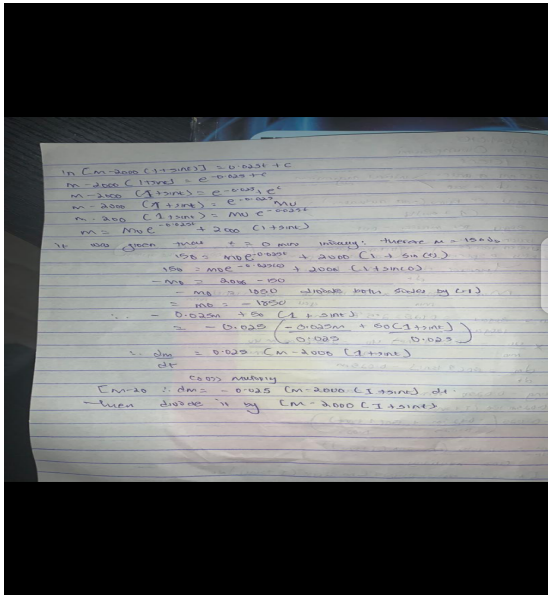 ln [m-2000 (1+sint)] = 0.025t + c
m-2000 (1+sint) = e^-0.025 + c
m-2000 (1+sint) = e^-0.025t e^c
m-2000 (1+sint) = e^-0.025 M0
m-200 (1+sint) = M0 e^-0.025t
m = M0e^-0.025t + 2000 (1+sint)
it was given that t = 0 mins initially: therefore m = 150
150 = M0e^-0.025(0) + 2000 (1 + sin(0))
150 = M0e^-0.025(0) + 2000 (1+sin(0)
- M0 = 2000 - 150
- M0 = 1850 divide both sides by (-1)
= M0 = -1850
∴ - 0.025m + 50 (1 + sint)
= - 0.025 (-0.025m + 50(1+sint)
0.025 - 0.025)
∴ dm = 0.025 (m-2000 (1+sint)
dt
cross multiply
[m-20 ∴ dm = -0.025 [m-2000 (1+sint) dt
then divide it by [m-2000 (1+sint)